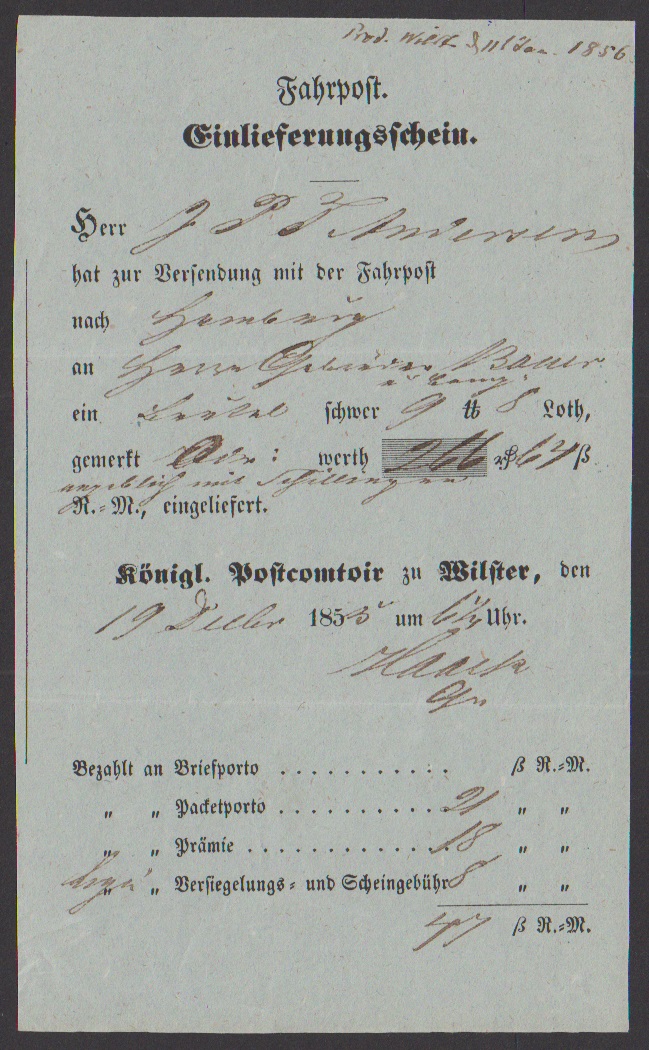 Prod. Wilst. 11 Jan. 1856
Fahrpost.
Einlieferungsschein.
Herr J P T Andersen
hat zur Versendung mit der Fahrpost
nach Hamburg
an Herrn Gebrüder Bauer
ein Beutel schwer 9 ℔ 8 Loth,
gemerkt Adr: werth 266 rß 64 ß
angeblich mit Schillingen
R.=M., eingeliefert.
Königl. Postcomtoir zu Wilster, den
19 Decbr 1855 um 6 Uhr.
Haack
Bezahlt an Briefporto . . . . . . . . . . . ß R.=M.
„ „ Packetporto . . . . . . . . . . 21 „ „
„ „ Prämie . . . . . . . . . . . . 18 „ „
„ „ Versiegelungs= und Scheingebühr 8 „ „
47 ß R.=M.